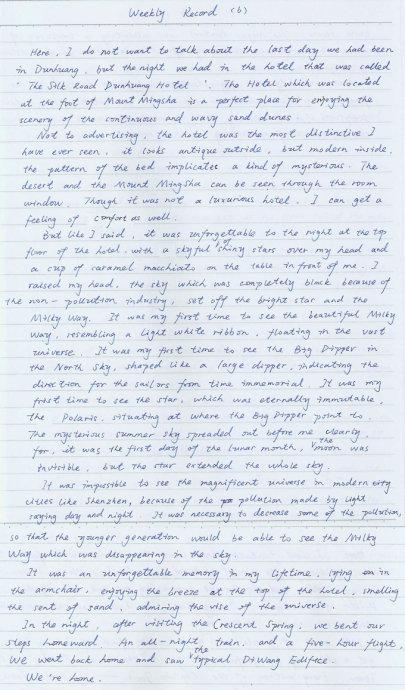 Weekly Record (6)
Here, I do not want to talk about the last day we had been
in Dunhuang, but the night we had in the hotel that was called
' The Silk Road Dunhuang Hotel '. The Hotel which was located
at the foot of Mount Mingsha is a perfect place for enjoying the
scenery of the continuous and wavy sand dunes.
Not to advertising, the hotel was the most distinctive I
have ever seen, it looks antique outside, but modern inside,
the pattern of the bed implicates a kind of mysterious. The
desert and the Mount Mingsha can be seen through the room
window. Though it was not a luxurious hotel, I can get a
feeling of comfort as well.
But like I said, it was unforgettable to the night at the top
floor of the hotel. with a skyful of shiny stars over my head and
a cup of caramel macchiato on the table in front of me. I
raised my head, the sky which was completely black because of
the non-pollution industry, set off the bright star and the
Milky Way. It was my first time to see the beautiful Milky
Way, resembling a light white ribbon, floating in the vast
universe. It was my first time to see the Big Dipper in
the North Sky, shaped like a large dipper, indicating the
direction for the sailors from time immemorial. It was my
first time to see the star, which was eternally immutable,
the Polaris, situating at where the Big Dipper point to
The mysterious summer sky spreaded out before me clearly.
for, it was the first day of the lunar month, the moon was
invisible, but the star extended the whole sky.
It was impussible to see the magnificent universe in modern city
cities like Shenzhen, because of the pollution made by light
raying day and night. It was necessary to decrease some of the pollution,
so that the younger generation would be able to see the Milky
Way which was disappearing in the sky.
It was an unforgettable memory in my lifetime, lying on in
the armchair, enjoying the breeze at the top of the hotel, smelling
the sent of sand, admiring the vise of the universe.
In the night, after visiting the Crescent Spring, we bent our
steps homeward. An all-night train, and a five-hour flight,
We went back home and saw the typical DiWang Edifice.
We're home.